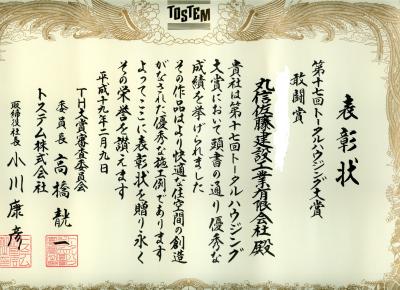 TOSTEM
表彰状
第十七回トータルハウジング大賞
敢闘賞
丸信佐藤建設工業有限会社 殿
貴社は第十七回トータルハウジング
大賞において頭書の通り優秀な
成績を挙げられました
その作品はより快適な住空間の創造
がなされた優秀な施工例であります
よってここに表彰状を贈り永く
その栄誉を讃えます
平成十九年二月九日
TH大賞審査委員会
委員長 高橋 一
トステム株式会社
取締役社長 小川康彦